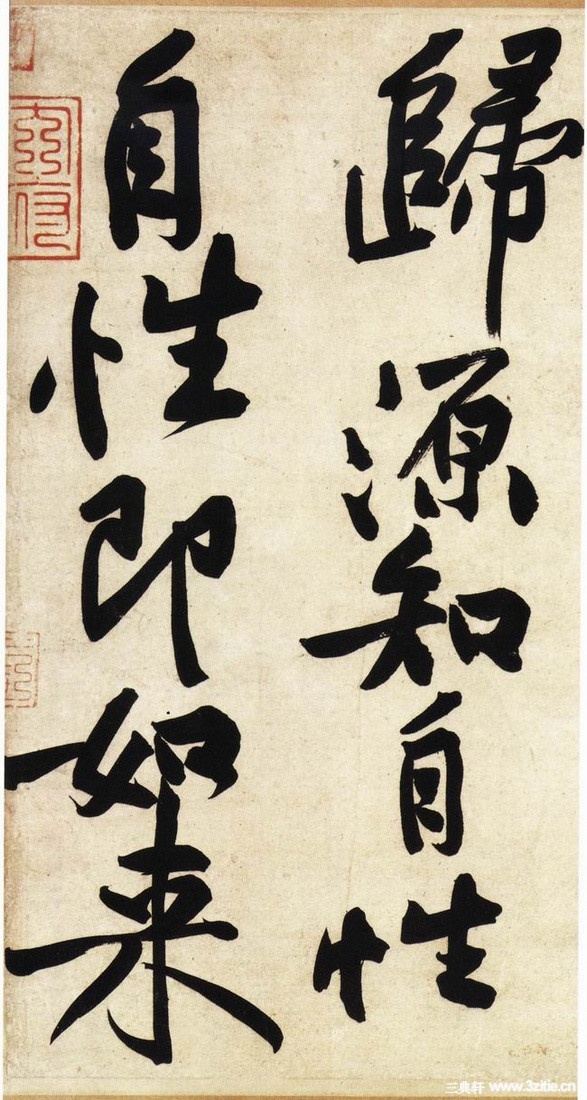 歸源知自性
自性即如来
三典轩 www.3zitie.cn